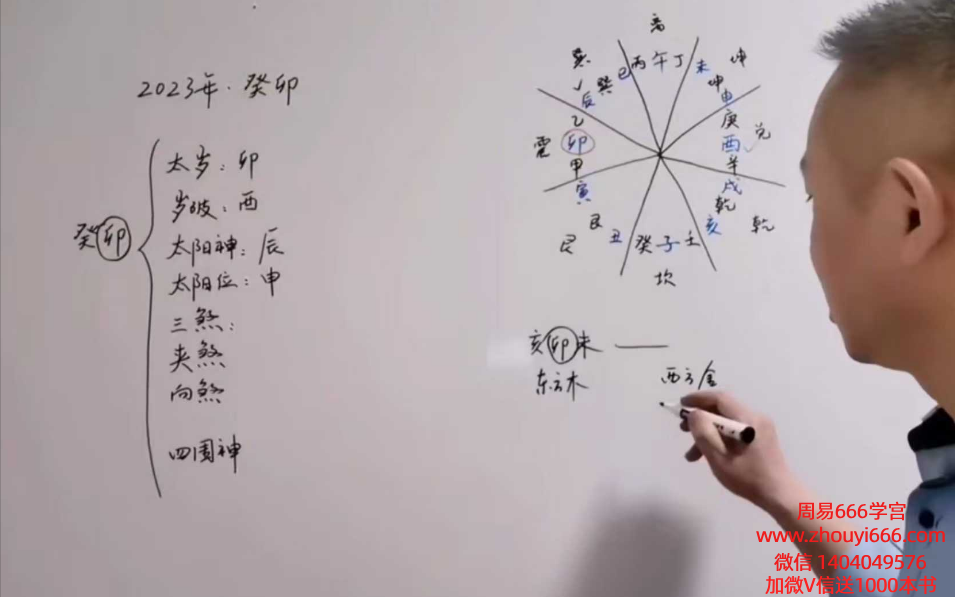 2023年·癸卯
癸卯
太岁：卯
岁破：酉
太阳神：辰
太阳位：申
三煞：
夹煞
向煞
四围神
离
丙午丁
未
坤
坤
申
庚
酉
兑
辛
戌
乾
乾
亥
癸子壬
坎
丑
艮
艮
寅
甲
卯
震
乙
辰
巽
巽
巳
亥卯未
东方木
西方金
周易666学宫
www.zhouyi666.com
微信 1404049576
加微V信送1000本书